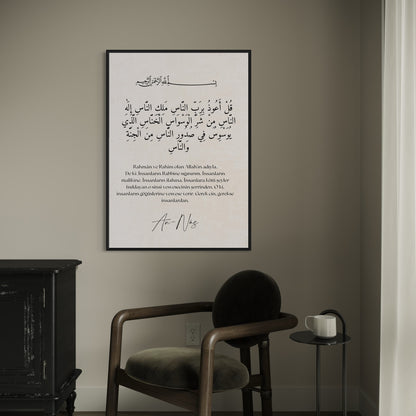 بسم الله الرحمن الرحيم
قُلْ أَعُوذُ بِرَبِّ النَّاسِ مَلِكِ النَّاسِ إِلَٰهِ
النَّاسِ مِنْ شَرِّ الْوَسْوَاسِ الْخَنَّاسِ الَّذِي
يُوَسْوِسُ فِي صُدُورِ النَّاسِ مِنَ الْجِنَّةِ
وَالنَّاسِ
Rahmân ve Rahîm olan Allah'ın adıyla.
De ki: İnsanların Rabbine sığınırım. İnsanların
malikine. İnsanların ilahına. İnsanlara kötü şeyler
fısıldayan o sinsi vesvesecinin şerrinden. O ki,
insanların göğüslerine vesvese verir. Gerek cin, gerekse
insanlardan.
An-Nas